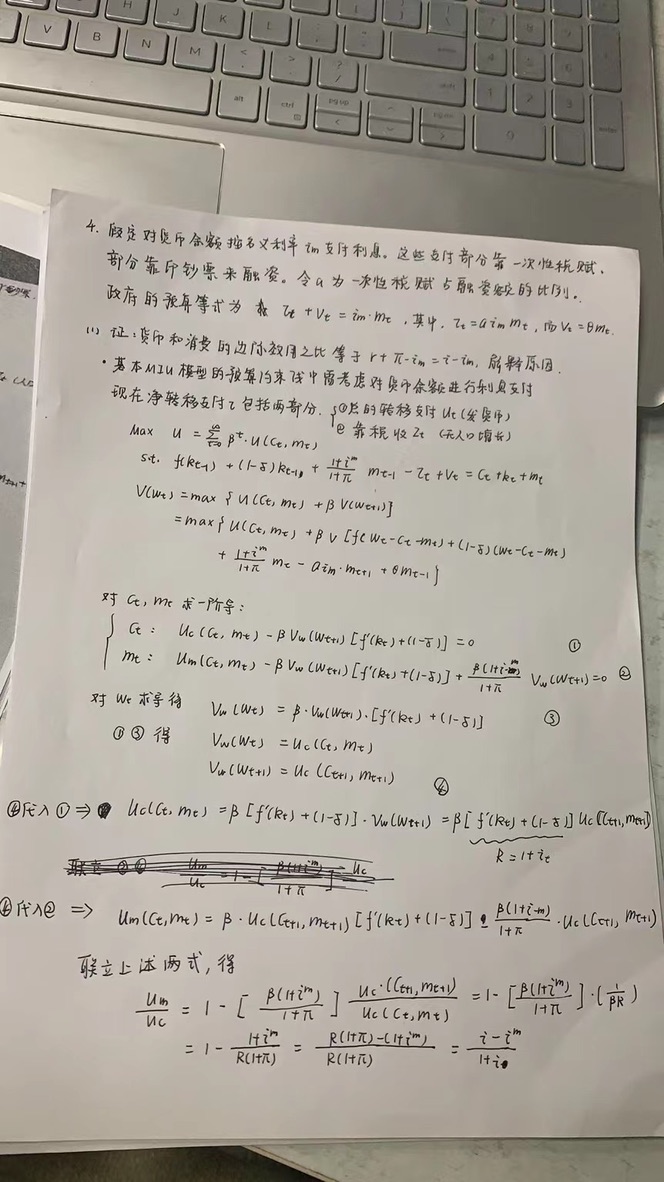 4. 假定对货币余额按名义利率 im 支付利息。这些支付部分靠一次性税赋、
部分靠印钞票来融资。令 a 为一次性税赋占融资额的比例。
政府的预算等式为 τt + Vt = im·mt ,其中, τt = a im mt , 而 Vt = θmt.
(1) 证:货币和消费的边际效用之比等于 r + π - im = i - im, 解释原因.
· 基本MIU模型的预算约束式中需考虑对货币余额进行利息支付
现在净转移支付 τ 包括两部分. ①总的转移支付 Ut (发货币)
② 靠税收 Zt (无人口增长)
Max U = Σ β^t · U(Ct, mt)
s.t. f(kt-1) + (1-δ)kt-1 + (1+i^m)/(1+π) mt-1 - τt + Vt = Ct + kt + mt
V(Wt) = max { U(Ct, mt) + β V(Wt+1)}
= max { U(Ct, mt) + β V [f(Wt - Ct - mt) + (1-δ)(Wt - Ct - mt)
+ (1+i^m)/(1+π) mt - a im·mt+1 + θmt-1 }
对 Ct, mt 求一阶导:
Ct : Uc (Ct, mt) - β Vw(Wt+1) [f'(kt) + (1-δ)] = 0 ①
mt : Um(Ct, mt) - β Vw(Wt+1) [f'(kt) + (1-δ)] + β(1+i^m)/(1+π) Vw(Wt+1) = 0 ②
对 Wt 求导得 Vw(Wt) = β·Vw(Wt+1)·[f'(kt) + (1-δ)] ③
①③ 得 Vw(Wt) = Uc(Ct, mt)
Vw(Wt+1) = Uc (Ct+1, mt+1) ④
④代入① ⇒ Uc(Ct, mt) = β [f'(kt) + (1-δ)] · Vw(Wt+1) = β[ f'(kt) + (1-δ)] Uc(Ct+1, mt+1)
R = 1 + it
④代入② ⇒ Um(Ct, mt) = β · Uc(Ct+1, mt+1) [f'(kt) + (1-δ)] - β(1+i^m)/(1+π) · Uc(Ct+1, mt+1)
联立上述两式, 得
Um/Uc = 1 - [ β(1+i^m)/(1+π) ] Uc·(Ct+1, mt+1)/Uc(Ct, mt) = 1 - [β(1+i^m)/(1+π)]·(1/βR)
= 1 - (1+i^m)/R(1+π) = R(1+π)-(1+i^m)/R(1+π) = i - i^m/1+i